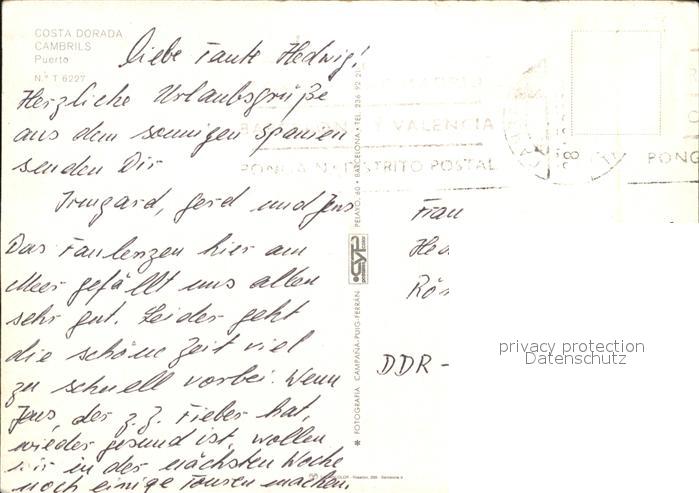 COSTA DORADA
CAMBRILS
Puerto
N.º T 6227
Liebe Tante Hedwig!
Herzliche Urlaubsgrüße
aus dem sonnigen Spanien
senden Dir
Irmgard, Gerd und Jens
Das Faulenzen hier am
Meer gefällt uns allen
sehr gut. Leider geht
die schöne Zeit viel
zu schnell vorbei. Wenn
Jens, der z.Z. Fieber hat,
wieder gesund ist, wollen
wir in der nächsten Woche
noch einige Touren machen.
VALENCIA
PONGA N.º DISTRITO POSTAL
PONG
FOTOGRAFIA CAMPAÑA-PUIG-FERRAN
CYP
PELAYO, 60 • BARCELONA • TEL. 236 92 20
Frau
DDR -
privacy protection
Datenschutz